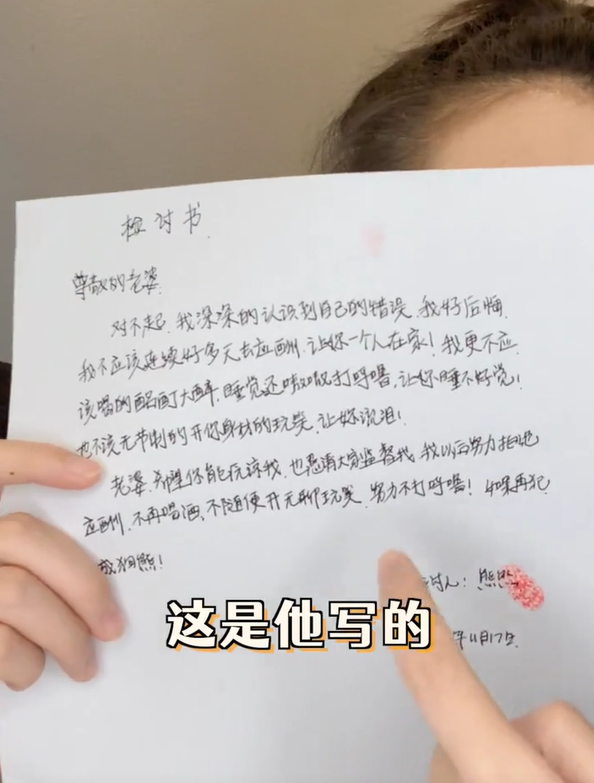 检讨书
尊敬的老婆
对不起,我深深的认识到自己的错误,我好后悔.
我不应该连续好多天去应酬,让你一个人在家!我更不应
该喝的酩酊大醉,睡觉还嗷嗷打呼噜,让你睡不好觉!
也不该无节制的开你身材的玩笑,让你流泪!
老婆,希望你能原谅我,也恳请大家监督我,我以后努力拒绝
应酬,不再喝酒,不随便开无聊玩笑,努力不打呼噜!如果再犯
狗熊!
讨人:熊
年11月17日.
这是他写的